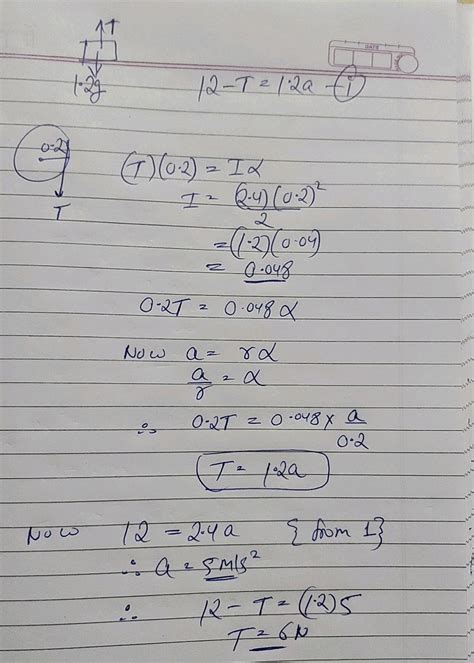 T
DATE
1.2g
12-T = 1.2a -①
0.2
T
(T)(0.2) = Iα
I = (2.4)(0.2)²
2
= (1.2)(0.04)
= 0.048
0.2T = 0.048 α
Now a = rα
a/r = α
∴ 0.2T = 0.048 x a/0.2
T = 1.2a
Now 12 = 2.4a {from 1}
∴ a = 5m/s²
∴ 12 - T = (1.2)5
T = 6N